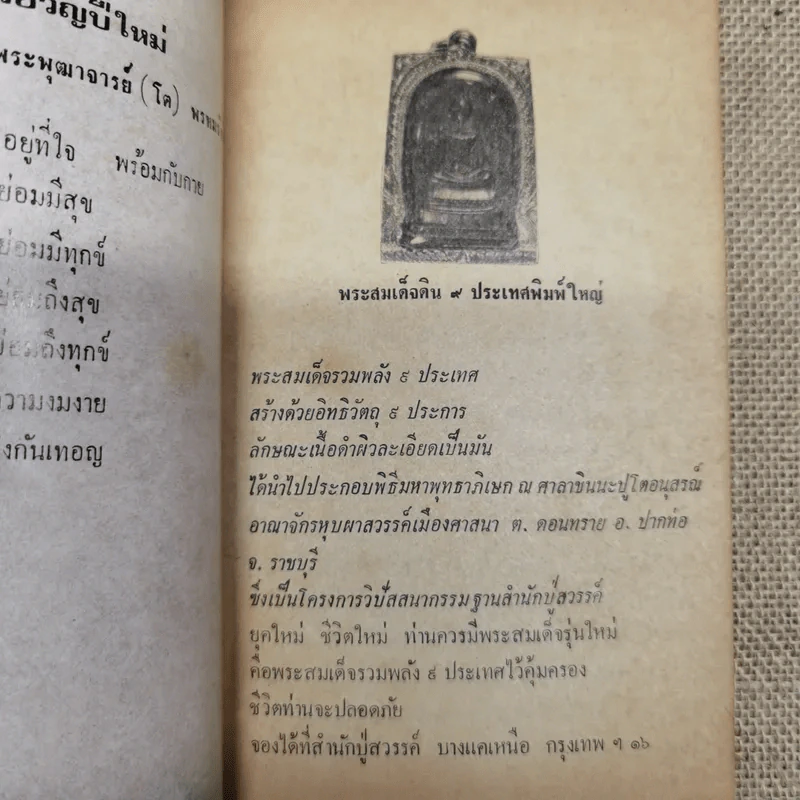 ปีใหม่
พระพุฒาจารย์ (โต)
อยู่ที่ใจ พร้อมกับกาย
ย่อมมีสุข
ย่อมมีทุกข์
ย่อมถึงสุข
ย่อมถึงทุกข์
ความงมงาย
กันเทอญ
พระสมเด็จดิน ๙ ประเทศพิมพ์ใหญ่
พระสมเด็จรวมพลัง ๙ ประเทศ
สร้างด้วยอิทธิวัตถุ ๙ ประการ
ลักษณะเนื้อดำผิวละเอียดเป็นมัน
ได้นำไปประกอบพิธีมหาพุทธาภิเษก ณ ศาลาชินนะปูโตอนุสรณ์
อาณาจักรหุบผาสวรรค์เมืองศาสนา ต. ดอนทราย อ. ปากท่อ
จ. ราชบุรี
ซึ่งเป็นโครงการวิปัสสนากรรมฐานสำนักปู่สวรรค์
ยุคใหม่ ชีวิตใหม่ ท่านควรมีพระสมเด็จรุ่นใหม่
คือพระสมเด็จรวมพลัง ๙ ประเทศไว้คุ้มครอง
ชีวิตท่านจะปลอดภัย
จองได้ที่สำนักปู่สวรรค์ บางแคเหนือ กรุงเทพ ฯ ๑๖